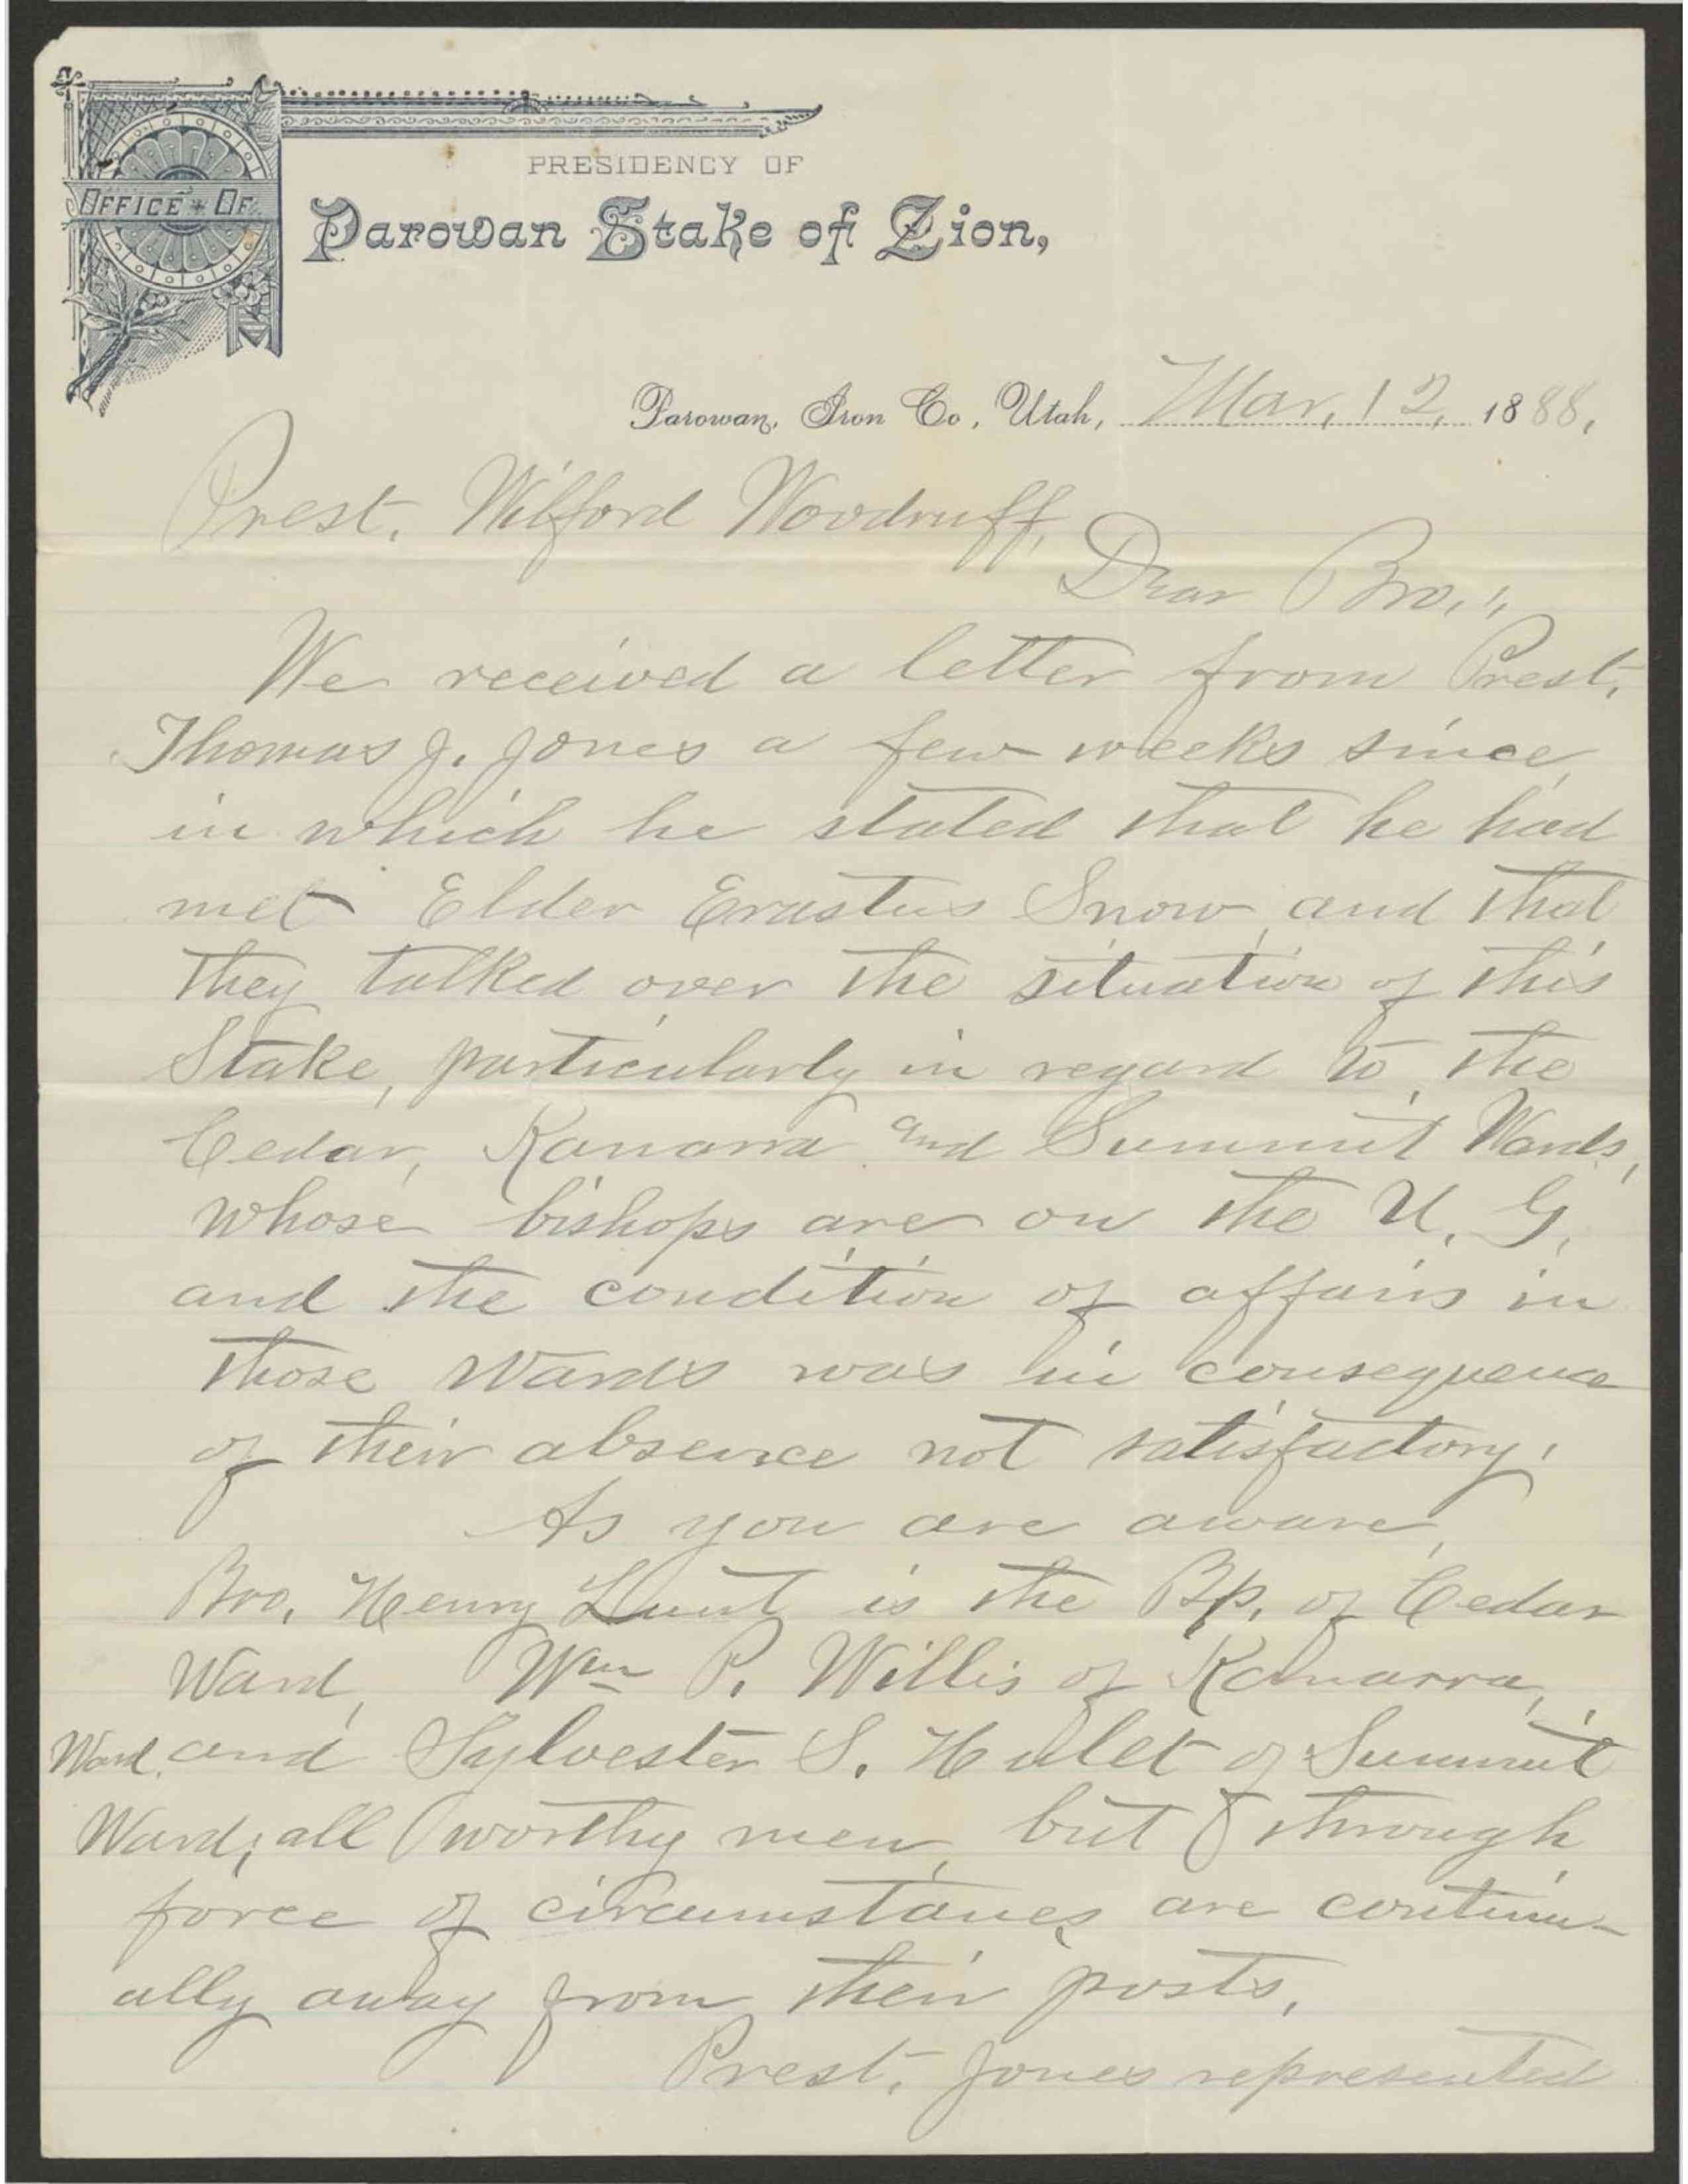 OFFICE OF
PRESIDENCY OF
Parowan Stake of Zion,
Parowan, Iron Co, Utah, Mar. 12, 1888.
Prest. Wilford Woodruff,
Dear Bro.:,
We received a letter from Prest.
Thomas J. Jones a few weeks since,
in which he stated that he had
met Elder Erastus Snow, and that
they talked over the situation of this
Stake, particularly in regard to the
Cedar, Kanarra and Summit Wards,
whose bishops are on the U. G.
and the condition of affairs in
those Wards was in consequence
of their absence not satisfactory.
As you are aware,
Bro. Henry Lunt is the Bp. of Cedar
Ward, Wm P. Willis of Kanarra,
Ward. and Sylvester S. Hulet of Summit
Ward; all worthy men, but through
force of circumstances are continu-
ally away from their posts.
Prest. Jones represented